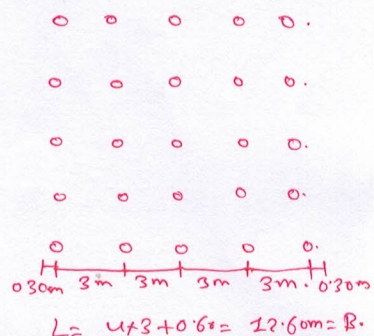 0.30m 3m 3m 3m 3m. 0.30m
L= 4x3+0.60= 12.60m= B.